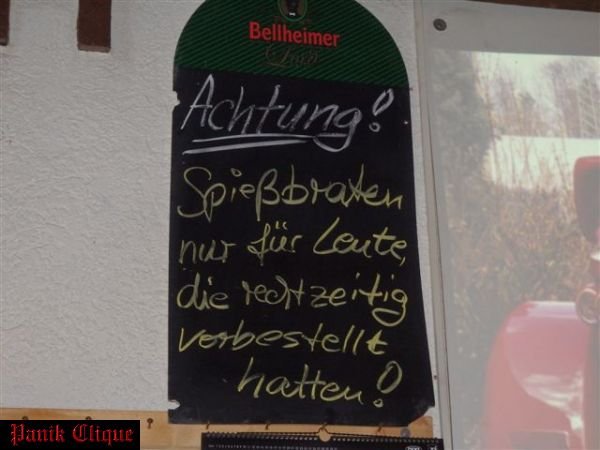 Bellheimer
Lord
Achtung!
Spießbraten
nur für Leute,
die rechtzeitig
vorbestellt
hatten!
Panik Clique